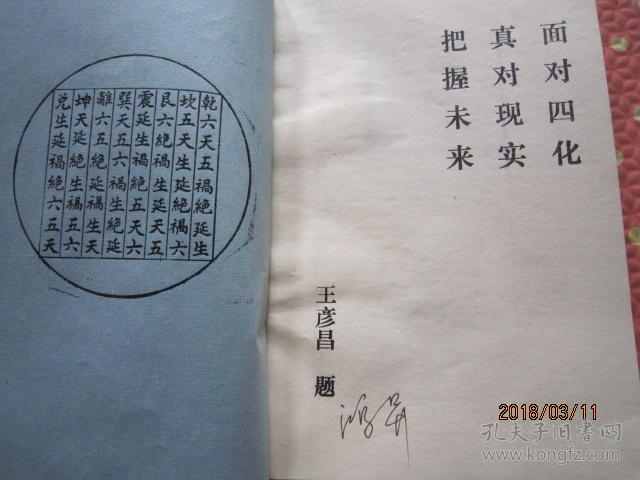 乾六天五禍絶延生
坎五天生延絶禍六
艮六絶禍生延天五
震延生禍絶五天六
巽天五六禍生絶延
離六五絶延禍生天
坤天延絶生禍五六
兌生延禍絶六五天
面对四化
真对现实
把握未来
王彦昌 题
2018/03/11
孔夫子旧书网
www.kongfz.com